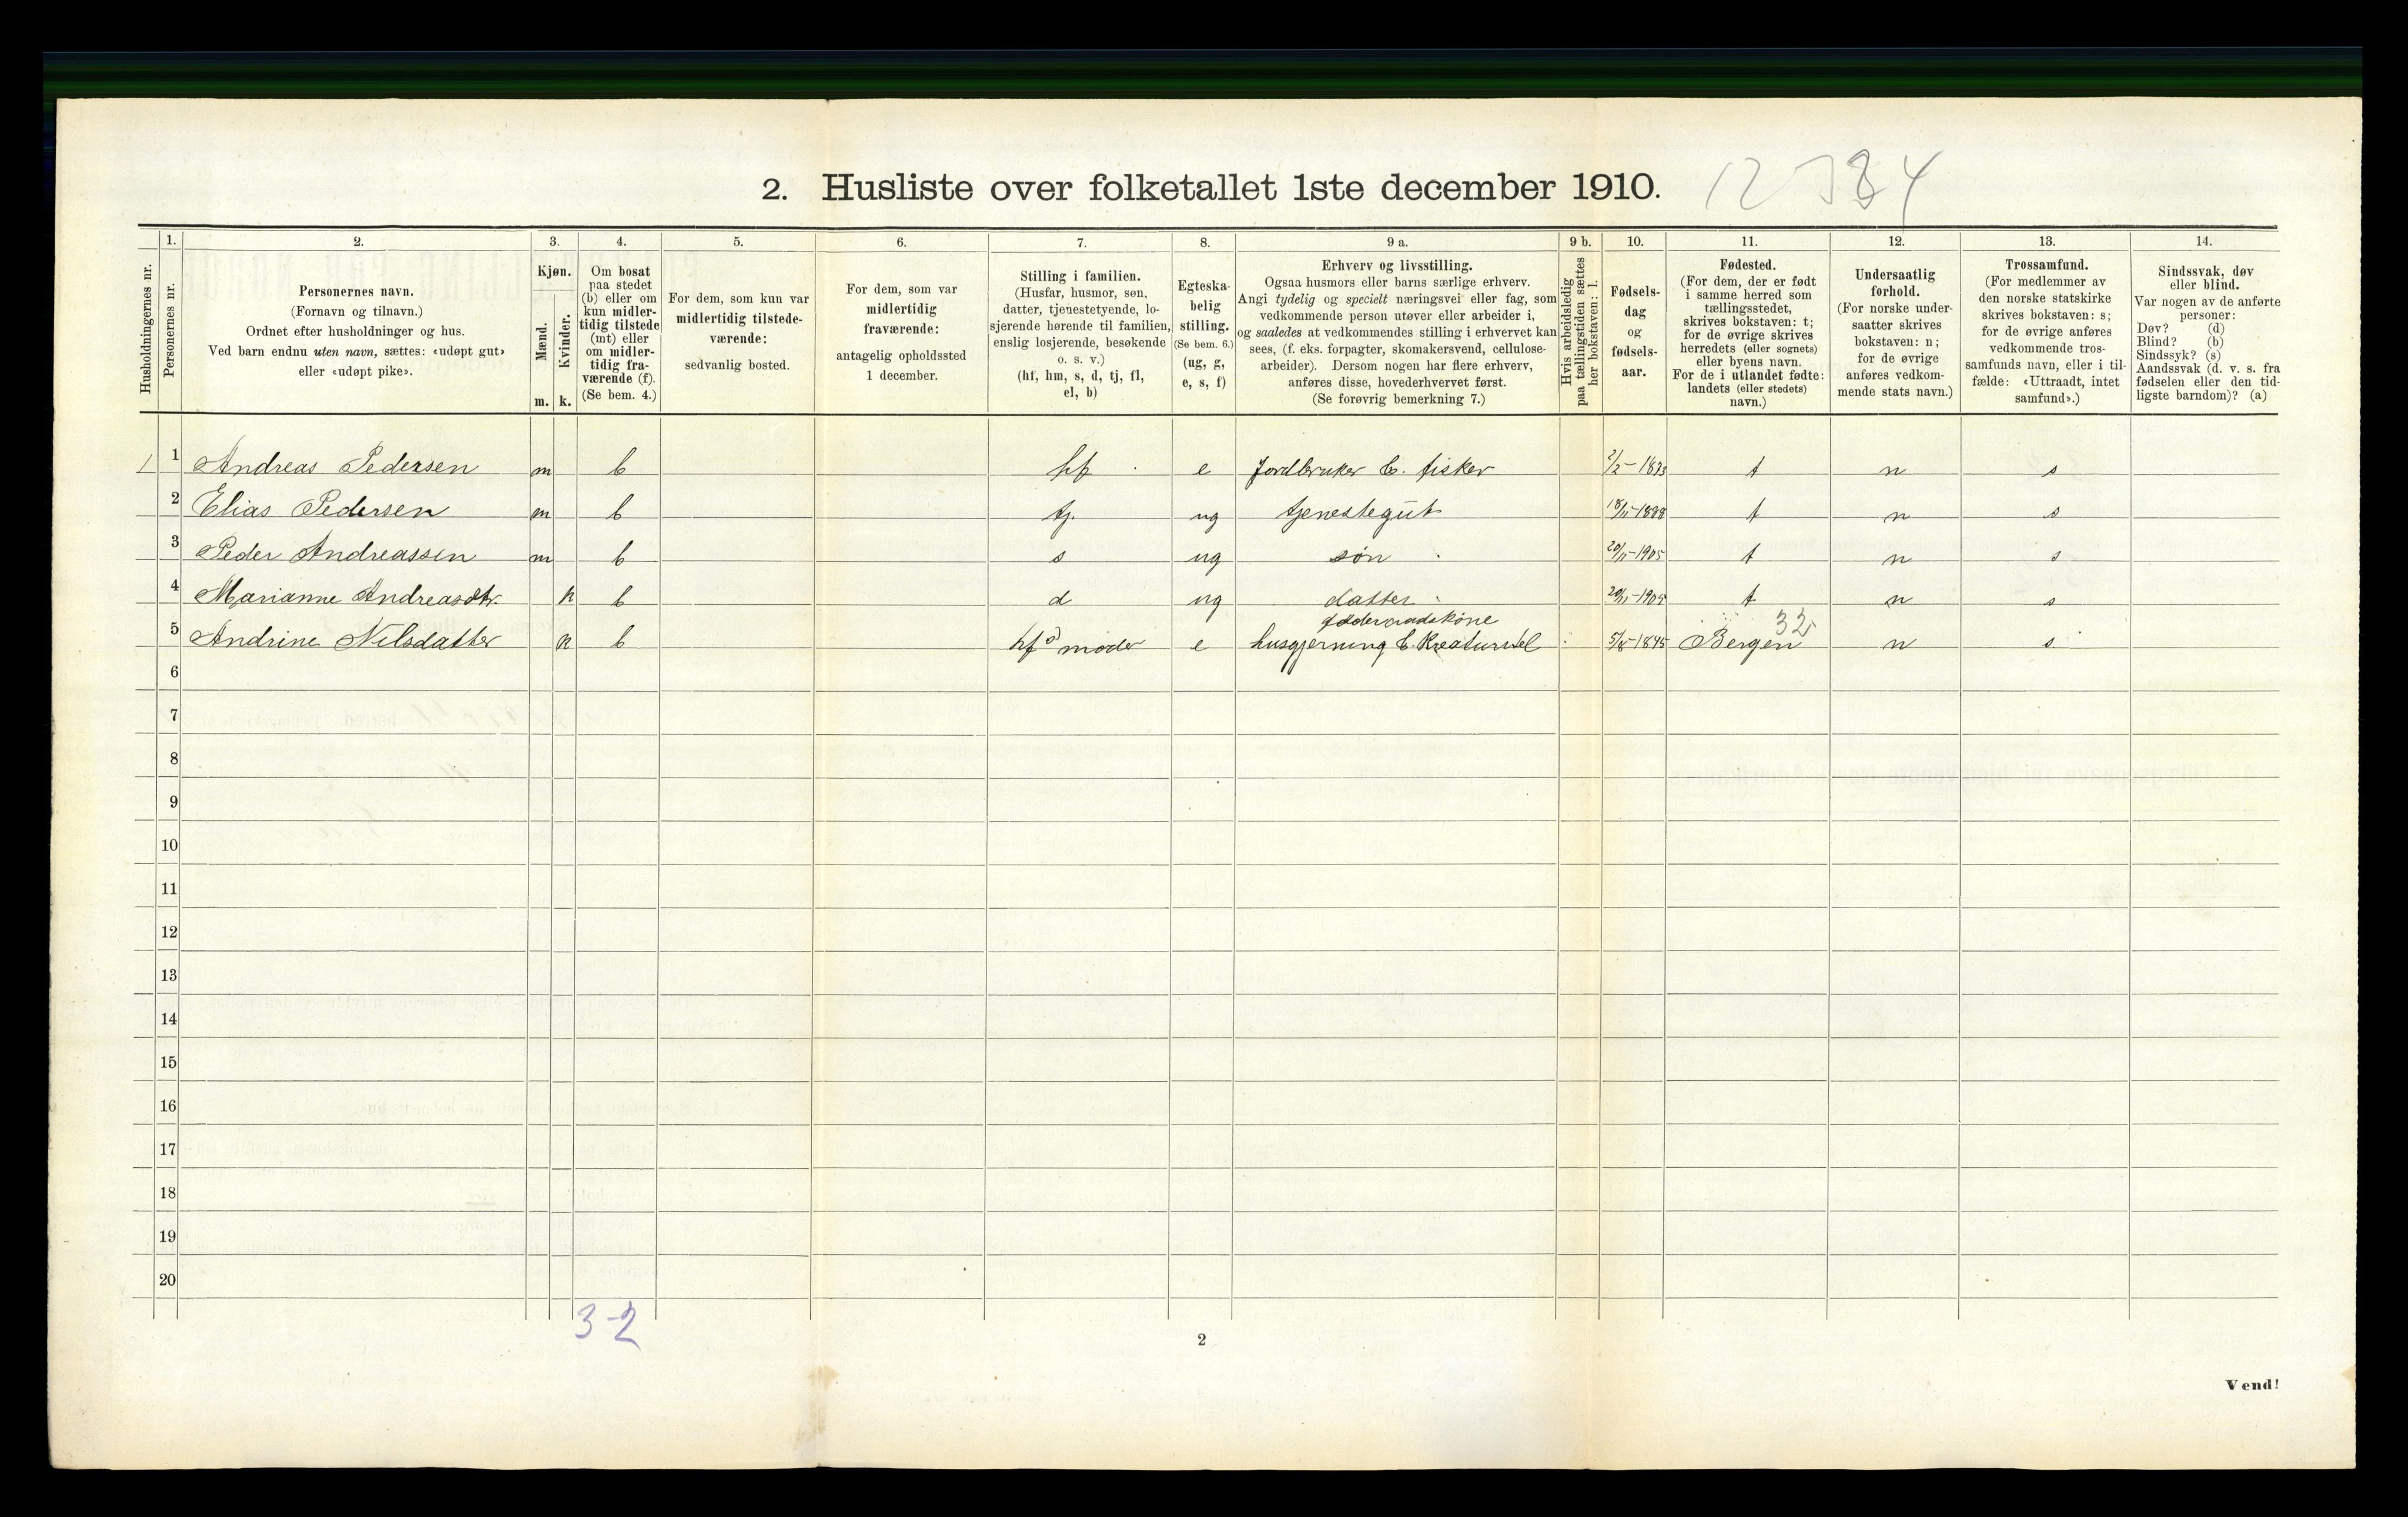 2. Husliste over folketallet 1ste december 1910.
1. 2. 3. 4. 5. 6. 7. 8. 9 a. 9 b. 10. 11. 12. 13. 14.
Husholdningernes nr.
Personernes nr.
Personernes navn.
(Fornavn og tilnavn.)
Ordnet efter husholdninger og hus.
Ved barn endnu uten navn, sættes: «udøpt gut»
eller «udøpt pike».
Kjøn.
Mænd.
Kvinder.
m. k.
Om bosat
paa stedet
(b) eller om
kun midler-
tidig tilstede
(mt) eller
om midler-
tidig fra-
værende (f).
(Se bem. 4.)
For dem, som kun var
midlertidig tilstede-
værende:
sedvanlig bosted.
For dem, som var
midlertidig
fraværende:
antagelig opholdssted
1 december.
Stilling i familien.
(Husfar, husmor, søn,
datter, tjenestetyende, lo-
sjerende hørende til familien,
enslig losjerende, besøkende
o. s. v.)
(hf, hm, s, d, tj, fl,
el, b)
Egteska-
belig
stilling.
(Se bem. 6.)
(ug, g,
e, s, f)
Erhverv og livsstilling.
Ogsaa husmors eller barns særlige erhverv.
Angi tydelig og specielt næringsvei eller fag, som
vedkommende person utøver eller arbeider i,
og saaledes at vedkommendes stilling i erhvervet kan
sees, (f. eks. forpagter, skomakersvend, cellulose-
arbeider). Dersom nogen har flere erhverv,
anføres disse, hovederhvervet først.
(Se forøvrig bemerkning 7.)
Hvis arbeidsledig
paa tællingstiden sættes
her bokstaven: l.
Fødsels-
dag
og
fødsels-
aar.
Fødested.
(For dem, der er født
i samme herred som
tællingsstedet,
skrives bokstaven: t;
for de øvrige skrives
herredets (eller sognets)
eller byens navn.
For de i utlandet fødte:
landets (eller stedets)
navn.)
Undersaatlig
forhold.
(For norske under-
saatter skrives
bokstaven: n;
for de øvrige
anføres vedkom-
mende stats navn.)
Trossamfund.
(For medlemmer av
den norske statskirke
skrives bokstaven: s;
for de øvrige anføres
vedkommende tros-
samfunds navn, eller i til-
fælde: «Uttraadt, intet
samfund».)
Sindssvak, døv
eller blind.
Var nogen av de anførte
personer:
Døv? (d)
Blind? (b)
Sindssyk? (s)
Aandssvak (d. v. s. fra
fødselen eller den tid-
ligste barndom)? (a)
1 1 Andreas Pedersen m b hf e Jordbruker & fisker t n s
2 Elias Pedersen m b tj. ug tjenestegut t n s
3 Peder Andreassen m b s ug søn 20/11-1905 t n s
4 Marianne Andreasdtr. k b d ug datter t n s
32
5 Andrine Nilsdatter k b hf's moder e husgjerning & Kreaturstel 5/8-1845 Bergen n s
6
7
8
9
10
11
12
13
14
15
16
17
18
19
20
3-2
2
Vend!